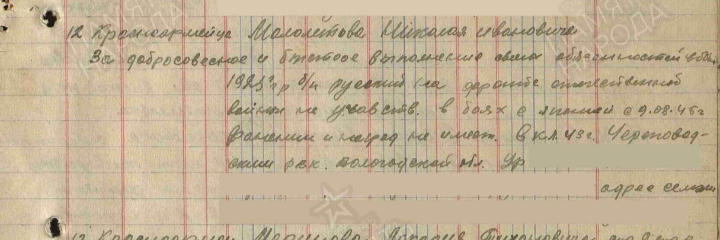 12 Красноармейца Мололетова Николая Ивановича
За добросовестное и быстрое выполнение своих обязанностей в бою
1925 г р б/п русский на фронте отечественной
войны не участв. в боях с японией с 9.08.45 г
Ранений и наград не имеет. В К.А. 43 г. Череповец-
ким рвк. Вологодской обл.
адрес семьи
13 Красноармейца